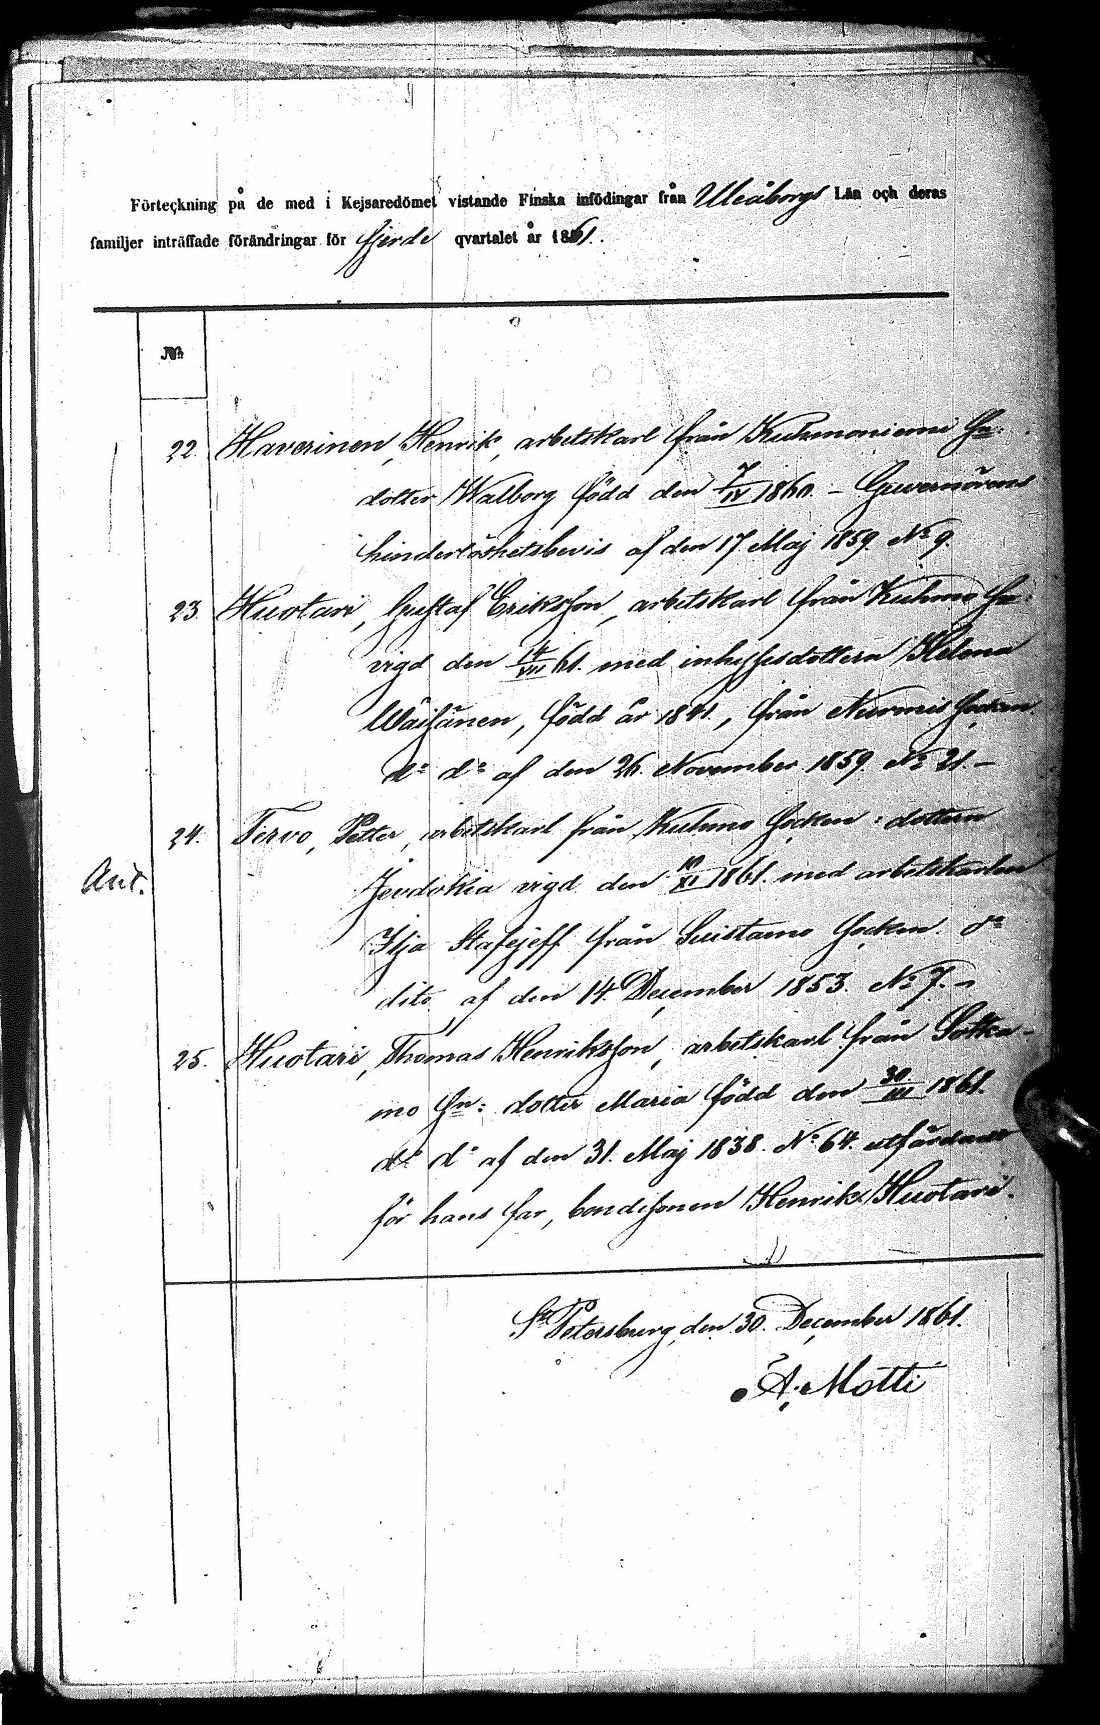 Förteckning på de med i Kejsaredömet vistande Finska infödingar från Uleåborgs Län och deras
familjer inträffade förändringar för fjerde qvartalet år 1861.
No
22. Haverinen, Henrik, arbetskarl från Kuhmoniemi Sn:
dotter Walborg född den 7/IV 1860. – Guvernörens
hinderlöshetsbevis af den 17 Maj 1859. No 9.
23. Huotari, Gustaf Eriksson, arbetskarl från Kuhmo Sn:
vigd den 14/VII 61. med inhysesdottern Helena
Wäisänen, född år 1841., från Nurmis Socken
do do af den 26. November 1859. No 21. –
24. Tervo, Petter, arbetskarl från Kuhmo Socken: dottern
Ant.
Jevdokia vigd den 10/XI 1861. med arbetskarlen
Ilja Stafejeff från Suistamo Socken. do
dito af den 14. December 1853. No 7. –
25. Huotari, Thomas Henriksson, arbetskarl från Sotka-
mo Sn: dotter Maria född den 30/III 1861.
do do af den 31. Maj 1838. No 64. utfärdadt
för hans far, bondesonen Henrik Huotari.
St Petersburg, den 30. December 1861.
A. Motti